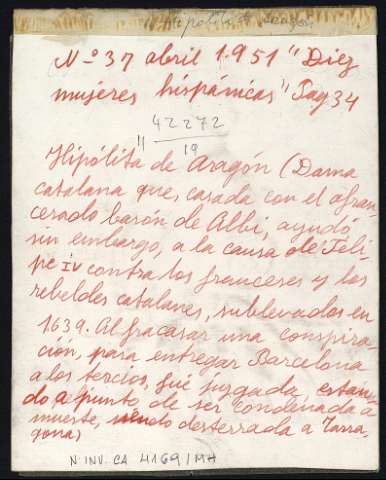 Hipólita de Aragón
Nº 37 abril 1.951 "Diez
mujeres hispánicas" Pag 34
42272
" 19
Hipólita de Aragón (Dama
catalana que, casada con el afran-
cesado barón de Albi, ayudó
sin embargo, a la causa de Feli-
pe IV contra los franceses y los
rebeldes catalanes, sublevados en
1639. Al fracasar una conspira-
ción, para entregar Barcelona
a los tercios, fué juzgada, estan-
do a punto de ser condenada a
muerte, siendo desterrada a Tarra-
gona)
N. INV. CA 4169/MH